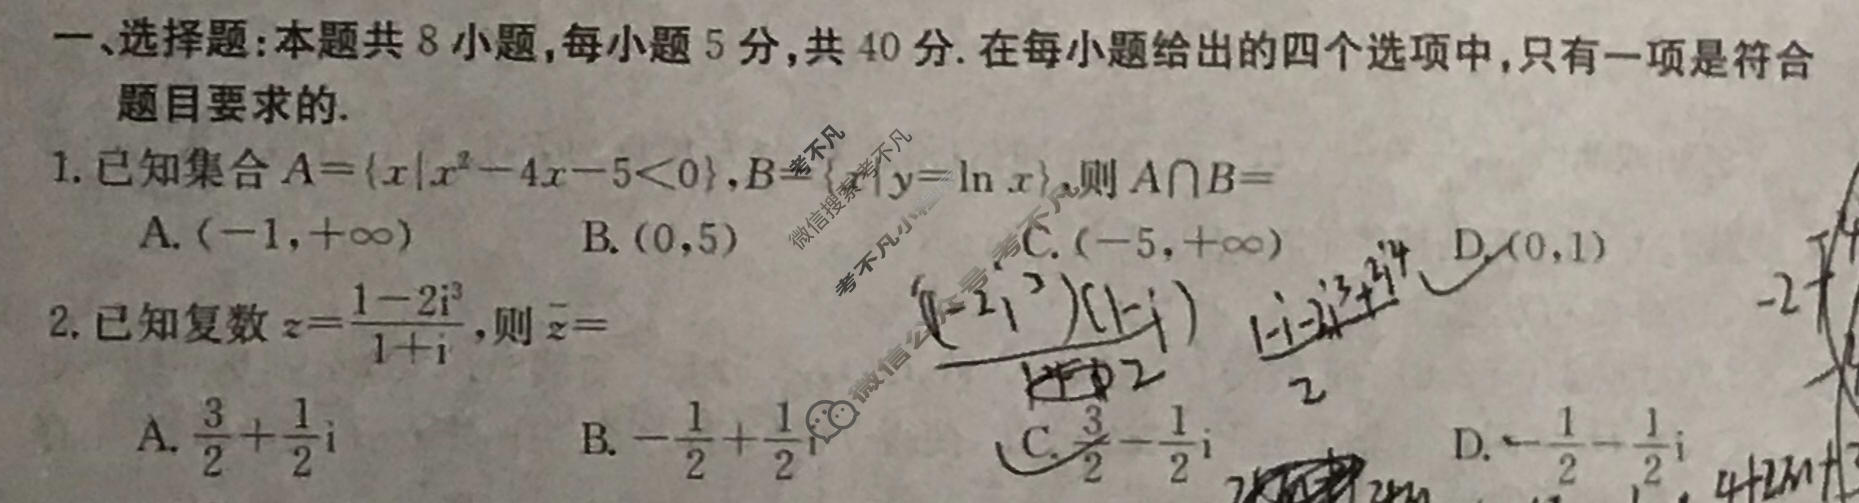 一、选择题:本题共 8 小题,每小题 5 分,共 40 分. 在每小题给出的四个选项中,只有一项是符合
题目要求的.
1. 已知集合 A={x|x²-4x-5<0},B={x|y=ln x},则 A∩B=
A. (-1,+∞) B. (0,5) C. (-5,+∞) D. (0,1)
2. 已知复数 z=\frac{1-2i³}{1+i},则 \bar{z}=
\frac{(1-2i³)(1-i)}{2} \frac{1-i-2i³+2i⁴}{2}
A. \frac{3}{2}+\frac{1}{2}i B. -\frac{1}{2}+\frac{1}{2}i C. \frac{3}{2}-\frac{1}{2}i D. -\frac{1}{2}-\frac{1}{2}i
考不凡
微信搜索考不凡
考不凡小
微信公众号:考不凡
-2
4+2m+